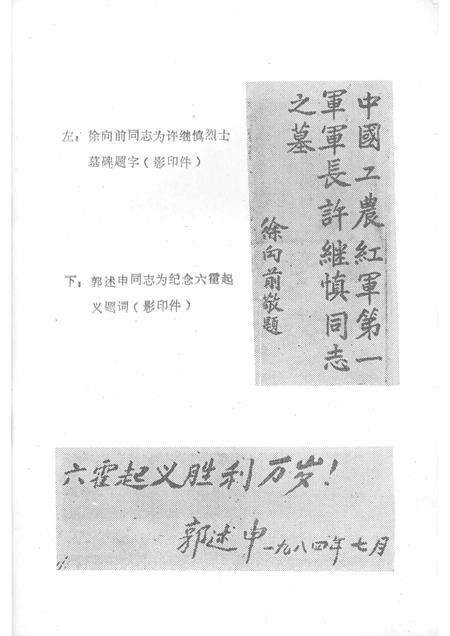 左：徐向前同志为许继慎烈士
墓碑题字（影印件）
中國工農紅軍第一
軍軍長許繼慎同志
之墓
徐向前敬題
下：郭述申同志为纪念六霍起
义题词（影印件）
六霍起义胜利万岁！
郭述申一九八四年七月